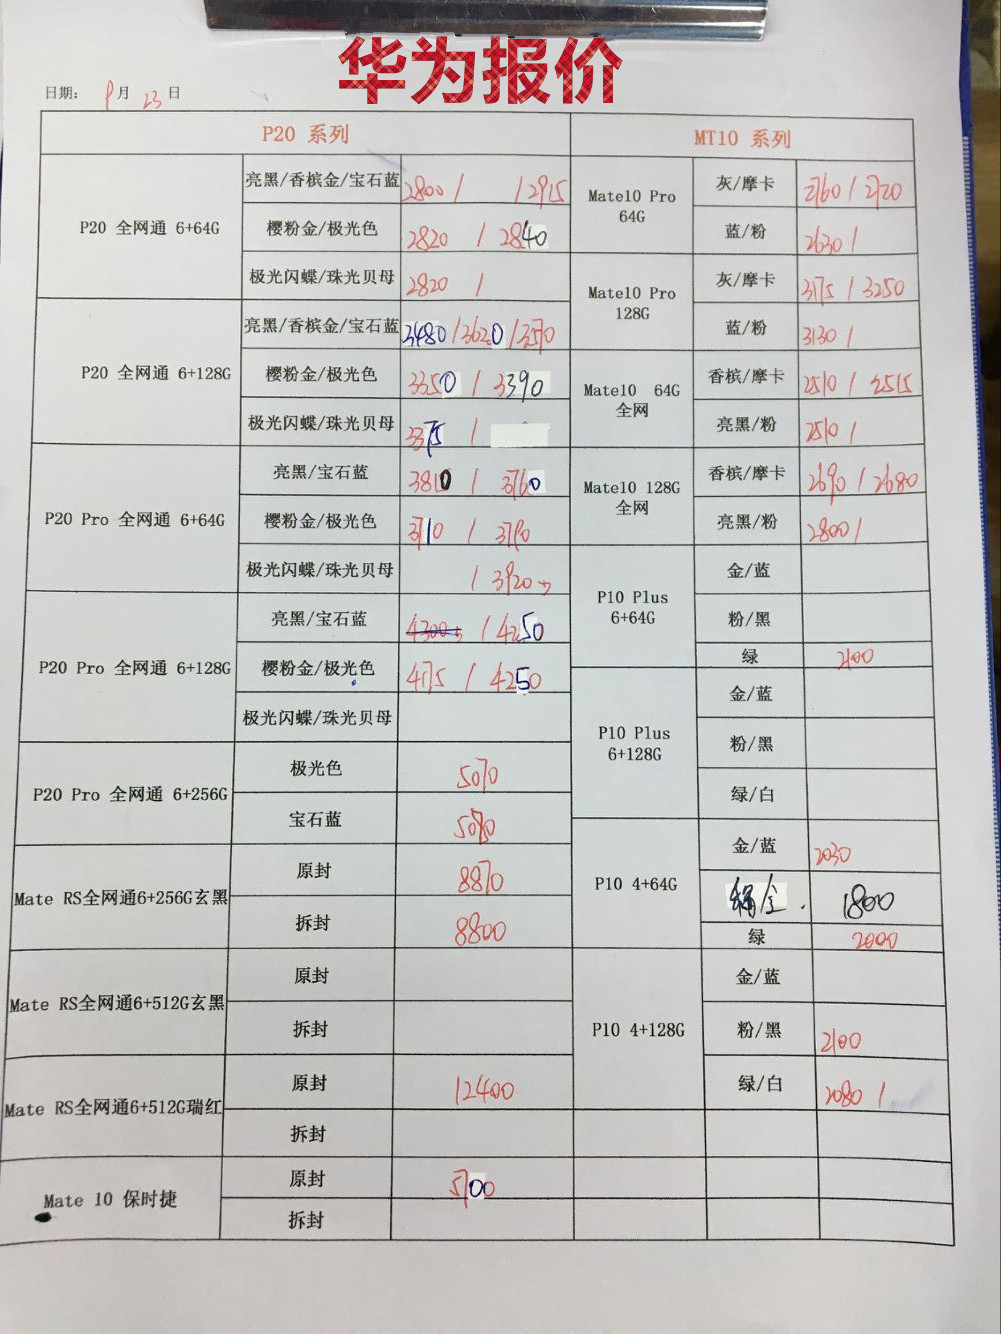 华为报价
日期： 月 23 日
P20 系列
P20 全网通 6+64G
亮黑/香槟金/宝石蓝 2800 / / 2915
樱粉金/极光色 2820 / 2840
极光闪蝶/珠光贝母 2820 /
P20 全网通 6+128G
亮黑/香槟金/宝石蓝 3480 / 3620 / 3570
樱粉金/极光色 3350 / 3390
极光闪蝶/珠光贝母 3375 /
P20 Pro 全网通 6+64G
亮黑/宝石蓝 3810 / 3760
樱粉金/极光色 3710 / 3790
极光闪蝶/珠光贝母 / 3920
P20 Pro 全网通 6+128G
亮黑/宝石蓝 4300 / 4250
樱粉金/极光色 4175 / 4250
极光闪蝶/珠光贝母
P20 Pro 全网通 6+256G
极光色 5070
宝石蓝 5080
Mate RS全网通6+256G玄黑
原封 8870
拆封 8800
Mate RS全网通6+512G玄黑
原封
拆封
Mate RS全网通6+512G瑞红
原封 12400
拆封
Mate 10 保时捷
原封 5700
拆封
MT10 系列
Mate10 Pro
64G
灰/摩卡 2760 / 2720
蓝/粉 2630 /
Mate10 Pro
128G
灰/摩卡 3175 / 3250
蓝/粉 3130 /
Mate10 64G
全网
香槟/摩卡 2510 / 2515
亮黑/粉 2510 /
Mate10 128G
全网
香槟/摩卡 2690 / 2680
亮黑/粉 2800 /
P10 Plus
6+64G
金/蓝
粉/黑
绿 2100
P10 Plus
6+128G
金/蓝
粉/黑
绿/白
P10 4+64G
金/蓝 2030
1800
绿 2000
P10 4+128G
金/蓝
粉/黑 2100
绿/白 2080 /